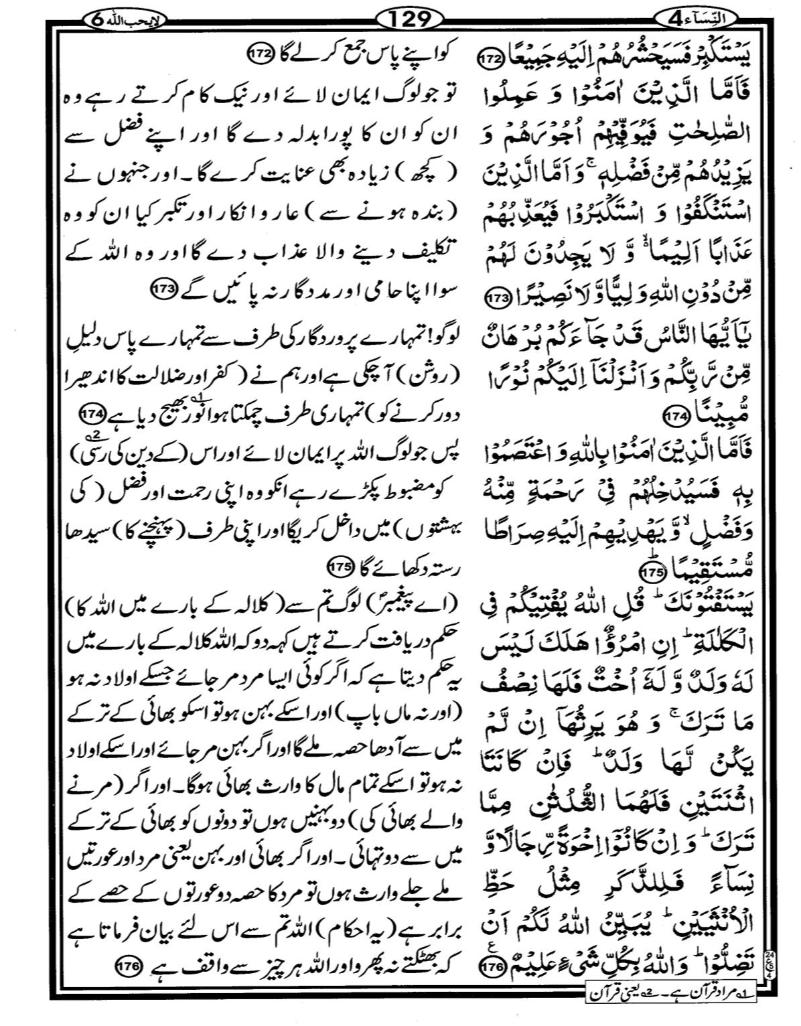 النِّسَآء4
129
لایحب اللّٰہ6
يَسْتَكْبِرْ فَسَيَحْشُرُهُمْ اِلَيْهِ جَمِيْعًا 172
فَاَمَّا الَّذِيْنَ اٰمَنُوْا وَ عَمِلُوا
الصّٰلِحٰتِ فَيُوَفِّيْهِمْ اُجُوْرَهُمْ وَ
يَزِيْدُهُمْ مِّنْ فَضْلِهٖ ۚ وَ اَمَّا الَّذِيْنَ
اسْتَنْكَفُوْا وَ اسْتَكْبَرُوْا فَيُعَذِّبُهُمْ
عَذَابًا اَلِيْمًا ۙ وَّ لَا يَجِدُوْنَ لَهُمْ
مِّنْ دُوْنِ اللّٰهِ وَلِيًّا وَّ لَا نَصِيْرًا 173
يٰۤاَيُّهَا النَّاسُ قَدْ جَآءَكُمْ بُرْهَانٌ
مِّنْ رَّبِّكُمْ وَ اَنْزَلْنَاۤ اِلَيْكُمْ نُوْرًا
مُّبِيْنًا 174
فَاَمَّا الَّذِيْنَ اٰمَنُوْا بِاللّٰهِ وَ اعْتَصَمُوْا
بِهٖ فَسَيُدْخِلُهُمْ فِيْ رَحْمَةٍ مِّنْهُ
وَ فَضْلٍ ۙ وَّ يَهْدِيْهِمْ اِلَيْهِ صِرَاطًا
مُّسْتَقِيْمًا ؕ 175
يَسْتَفْتُوْنَكَ ؕ قُلِ اللّٰهُ يُفْتِيْكُمْ فِي
الْكَلٰلَةِ ؕ اِنِ امْرُؤٌا هَلَكَ لَيْسَ
لَهٗ وَلَدٌ وَّ لَهٗۤ اُخْتٌ فَلَهَا نِصْفُ
مَا تَرَكَ ۚ وَ هُوَ يَرِثُهَاۤ اِنْ لَّمْ
يَكُنْ لَّهَا وَلَدٌ ؕ فَاِنْ كَانَتَا
اثْنَتَيْنِ فَلَهُمَا الثُّلُثٰنِ مِمَّا
تَرَكَ ؕ وَ اِنْ كَانُوْۤا اِخْوَةً رِّجَالًا وَّ
نِسَآءً فَلِلذَّكَرِ مِثْلُ حَظِّ
الْاُنْثَيَيْنِ ؕ يُبَيِّنُ اللّٰهُ لَكُمْ اَنْ
تَضِلُّوْا ؕ وَ اللّٰهُ بِكُلِّ شَيْءٍ عَلِيْمٌ 176
کو اپنے پاس جمع کر لے گا 172
تو جو لوگ ایمان لائے اور نیک کام کرتے رہے وہ
ان کو ان کا پورا بدلہ دے گا اور اپنے فضل سے
(کچھ) زیادہ بھی عنایت کرے گا۔ اور جنہوں نے
(بندہ ہونے سے) عار و انکار اور تکبر کیا ان کو وہ
تکلیف دینے والا عذاب دے گا اور وہ اللہ کے
سوا اپنا حامی اور مددگار نہ پائیں گے 173
لوگو! تمہارے پروردگار کی طرف سے تمہارے پاس دلیلِ
(روشن) آ چکی ہے اور ہم نے (کفر اور ضلالت کا اندھیرا
دور کرنے کو) تمہاری طرف چمکتا ہوا نور 1؎ بھیج دیا ہے 174
پس جو لوگ اللہ پر ایمان لائے اور اس (کے دین کی رسی) 2؎
کو مضبوط پکڑے رہے انکو وہ اپنی رحمت اور فضل (کی
بہشتوں) میں داخل کریگا اور اپنی طرف (پہنچنے کا) سیدھا
رستہ دکھائے گا 175
(اے پیغمبرؐ) لوگ تم سے (کلالہ کے بارے میں اللہ کا)
حکم دریافت کرتے ہیں کہہ دو کہ اللہ کلالہ کے بارے میں
یہ حکم دیتا ہے کہ اگر کوئی ایسا مرد مر جائے جسکے اولاد نہ ہو
(اور نہ ماں باپ) اور اسکے بہن ہو تو اسکو بھائی کے ترکے
میں سے آدھا حصہ ملے گا اور اگر بہن مر جائے اور اسکے اولاد
نہ ہو تو اسکے تمام مال کا وارث بھائی ہوگا۔ اور اگر (مرنے
والے بھائی کی) دو بہنیں ہوں تو دونوں کو بھائی کے ترکے
میں سے دو تہائی۔ اور اگر بھائی اور بہن یعنی مرد اور عورتیں
ملے جلے وارث ہوں تو مرد کا حصہ دو عورتوں کے حصے کے
برابر ہے (یہ احکام) اللہ تم سے اس لئے بیان فرماتا ہے
کہ بھٹکتے نہ پھرو اور اللہ ہر چیز سے واقف ہے 176
1؎ مراد قرآن ہے۔ 2؎ یعنی قرآن